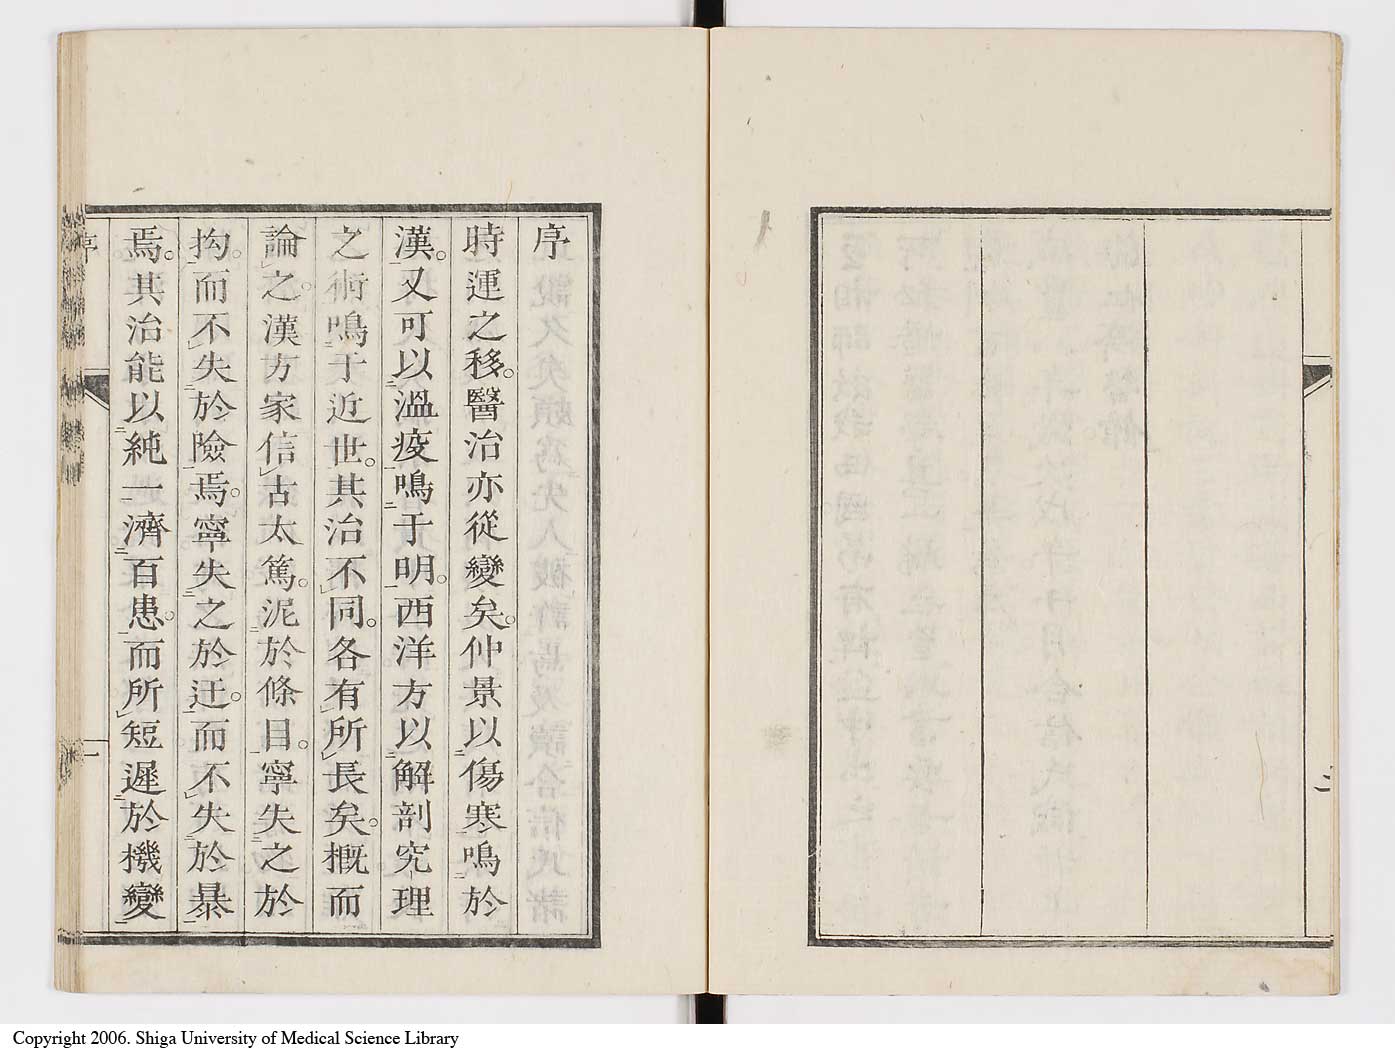 三
序
時運之移。醫治亦從變矣。仲景以傷寒鳴於
漢。又可以溫疫鳴于明。西洋方以解剖究理
之術鳴于近世。其治不同。各有所長矣。概而
論之。漢方家信古太篤。泥於條目。寧失之於
拘。而不失於險焉。寧失之於迂。而不失於暴
焉。其治能以純一濟百患。而所短遲於機變
序
一
Copyright 2006. Shiga University of Medical Science Library